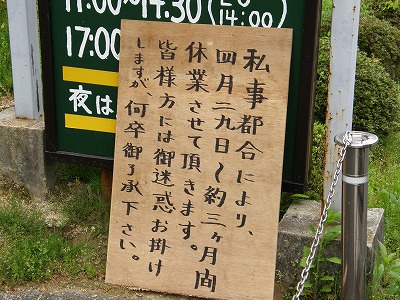 11:00〜14:30(L.O 14:00)
17:00
夜は
私事都合により、
四月二九日〜約三ヶ月間
休業させて頂きます。
皆様方には御迷惑お掛け
しますが、何卒御了承下さい。